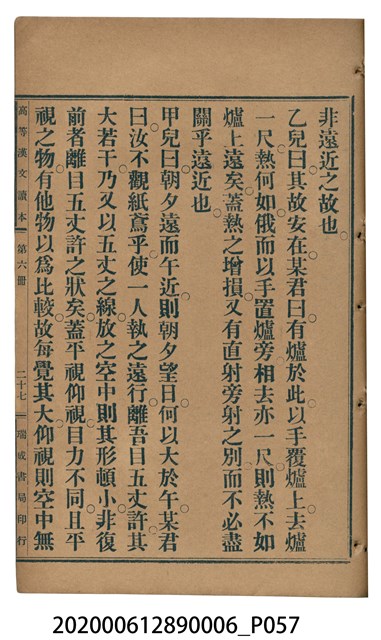 非遠近之故也。
乙兒曰。其故安在。某君曰。有爐於此。以手覆爐上。去爐
一尺。熱何如。俄而以手置爐旁。相去亦一尺。則熱不如
爐上遠矣。蓋熱之增損。又有直射旁射之別。而不必盡
關乎遠近也。
甲兒曰。朝夕遠而午近。則朝夕望日。何以大於午。某君
曰。汝不觀紙鳶乎。使一人執之遠行。離吾目五丈許。其
大若干。乃又以五丈之線。放之空中。則其形頓小。非復
前者離目五丈許之狀矣。蓋平視仰視。目力不同。且平
視之物。有他物以爲比較。故每覺其大。仰視則空中無
高等漢文讀本 第六冊 二十七 瑞成書局印行
202000612890006_P057